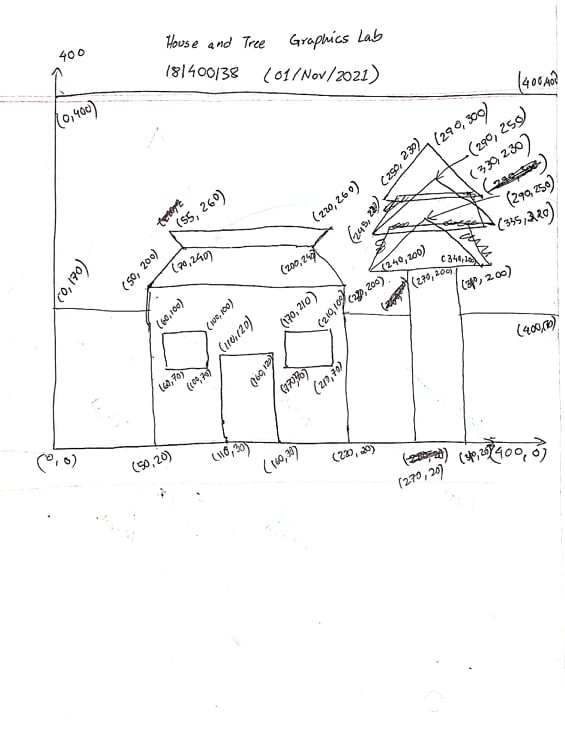 House and Tree Graphics Lab
181400138 (01/Nov/2021)
400
(400,400
(0,400)
(290,300)
(290,250)
(250,230)
(330,230)
(290,250)
(335,220)
(55,260)
(220,260)
(50,200)
(70,240)
(200,240
(240,200)
(340,200
(270,200)
(310,200)
(0,170)
(60,100)
(100,100)
(110,120)
(170,210)
(210,100)
(60,70)
(100,70)
(160,120
(170,70)
(213,70)
(0,0)
(50,20)
(110,30)
(160,30)
(220,20)
(270,20)
(310,20)
(400,0)